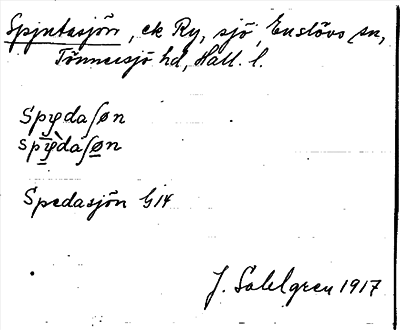 Spjutasjön, ek Ry, sjö, Enslövs sn,
Tönnersjö hd, Hall. l.
Spyda∫øn
Spedasjön G14
J. Sahlgren 1917